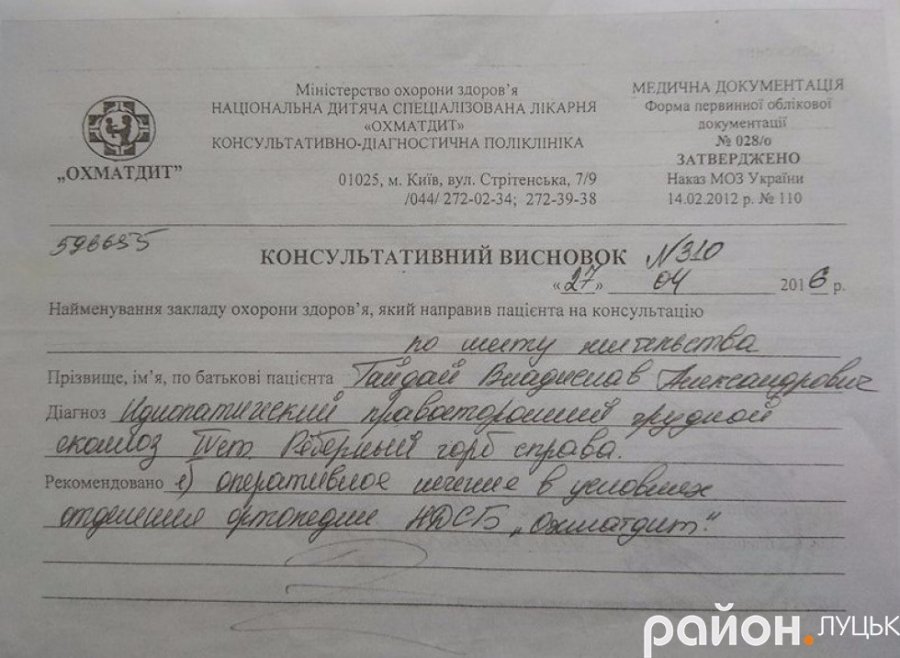 Міністерство охорони здоров'я
НАЦІОНАЛЬНА ДИТЯЧА СПЕЦІАЛІЗОВАНА ЛІКАРНЯ
«ОХМАТДИТ»
КОНСУЛЬТАТИВНО-ДІАГНОСТИЧНА ПОЛІКЛІНІКА
01025, м. Київ, вул. Стрітенська, 7/9
/044/ 272-02-34; 272-39-38
„ОХМАТДИТ”
МЕДИЧНА ДОКУМЕНТАЦІЯ
Форма первинної облікової
документації
№ 028/о
ЗАТВЕРДЖЕНО
Наказ МОЗ України
14.02.2012 р. № 110
КОНСУЛЬТАТИВНИЙ ВИСНОВОК №310
«27» 04 2016 р.
Найменування закладу охорони здоров'я, який направив пацієнта на консультацію
по месту жительства
Прізвище, ім'я, по батькові пацієнта Гайдай Владислав Александрович
Діагноз Идиопатический правосторонний грудной
сколиоз ст. Реберный горб справа.
Рекомендовано оперативное лечение в условиях
отделения ортопедии НДСБ „Охматдит".
район.ЛУЦЬК